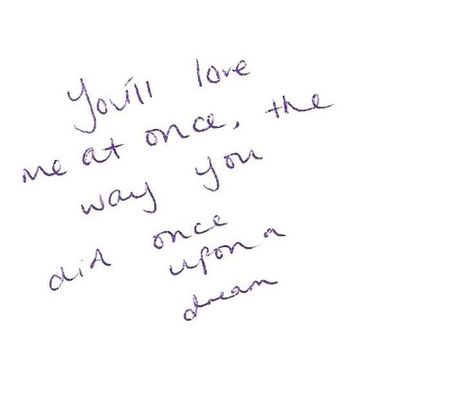 You'll love
me at once, the
way you
did once
upon a
dream